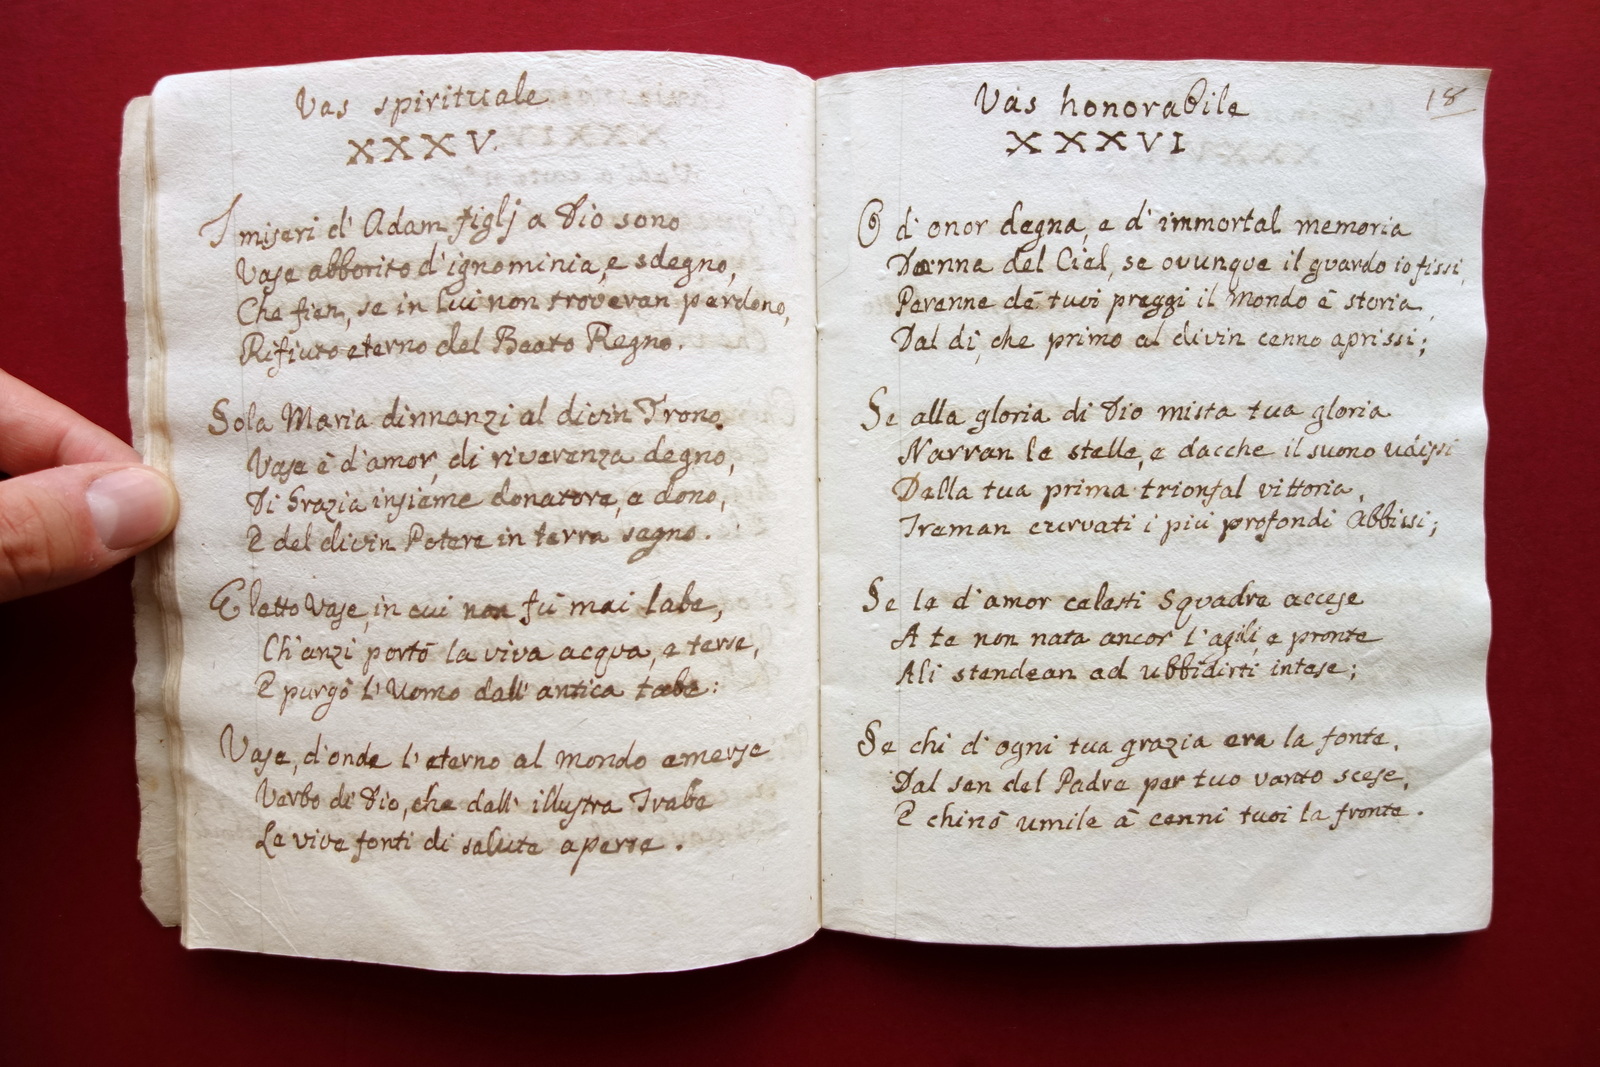 Vas spirituale
XXXV.
I miseri d' Adam figlj a Dio sono
Vase abborito d'ignominia, e sdegno,
Che fien, se in lui non troveran perdono,
Rifiuto eterno del Beato Regno.
Sola Maria dinnanzi al divin Trono
Vase è d'amor, di riverenza degno,
Di Grazia insieme donatore, e dono,
E del divin Potere in terra segno.
Eletto Vase, in cui non fù mai labe,
Ch'anzi portò la viva acqua, e terse,
E purgò l'Uomo dall' antica tabe:
Vase, d'onde l'eterno al mondo emerse
Verbo di Dio, che dall' illustra Trabe
Le vive fonti di salute aperse.
Vas honorabile
18
XXXVI
O d' onor degna, e d' immortal memoria
Donna del Ciel, se ovunque il guardo io fissi,
Perenne dè tuoi preggi il Mondo è storia,
Dal dì, che primo al divin cenno aprissi;
Se alla gloria di Dio mista tua gloria
Narran le stelle, e dacche il suono udissi
Della tua prima trionfal vittoria,
Treman curvati i più profondi Abbissi;
Se le d'amor celesti Squadre accese
A te non nata ancor l'agili, e pronte
Ali stendean ad ubbidirti intese;
Se chi d' ogni tua grazia era la fonte,
Dal sen del Padre per tuo vanto scese,
E chinò umile à cenni tuoi la fronte.